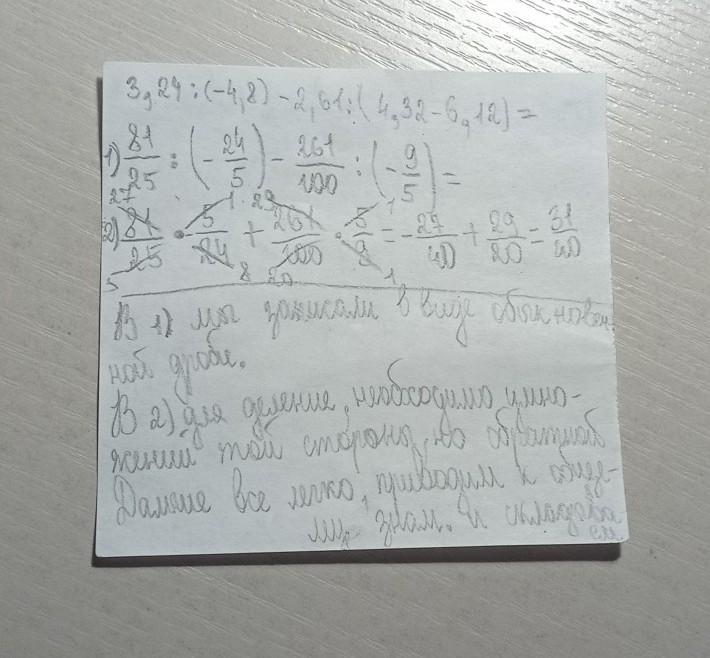 3,24:(-4,8)-2,61:(4,32-6,12)=
1) 81/25 : (- 24/5) - 261/100 : (- 9/5) =
27 1 29 1
2) 81/25 · 5/24 + 261/100 · 5/9 = - 27/40 + 29/20 = 31/40
5 8 20 1
В 1) мы записали в виде обыкновен-
ной дроби.
В 2) для деление, необходимо умно-
жений той стороны, но обратной
Дальше все легко, приводим к обще-
му знам. и складыва
ем.